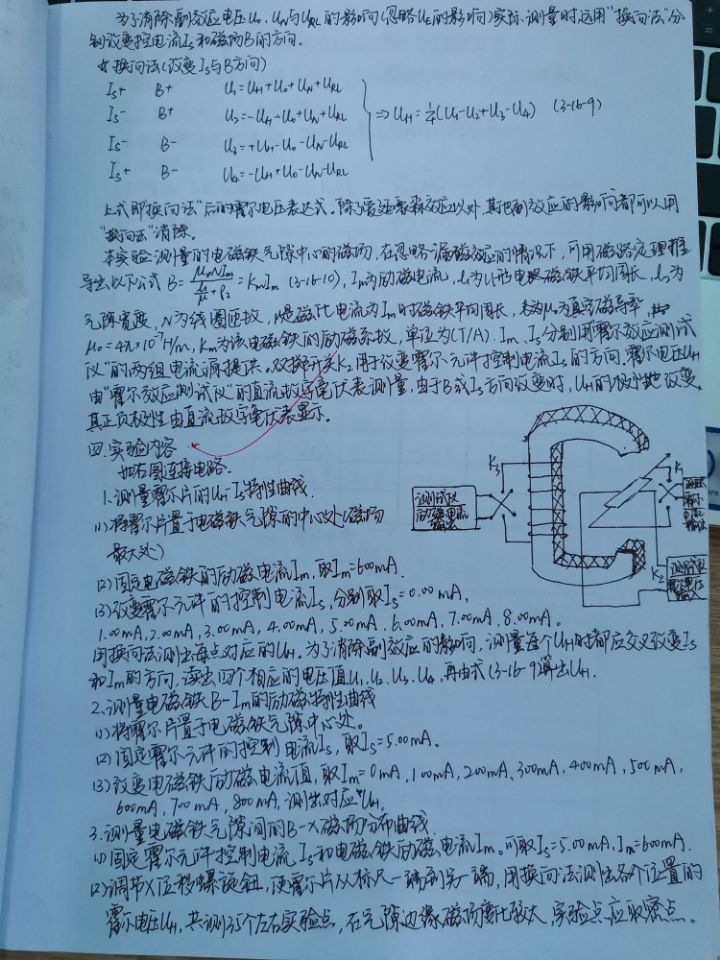 为了消除副效应电压U₀、U_N与U_RL的影响(忽略U_E的影响)实际测量时运用"换向法"分
别改变控制电流I_S和磁场B的方向.
☆换向法(改变I_S与B方向)
I_S+ B+ U₁=U_H+U₀+U_N+U_RL
I_S- B+ U₂=-U_H-U₀+U_N+U_RL
I_S- B- U₃=+U_H-U₀-U_N-U_RL
I_S+ B- U₄=-U_H+U₀-U_N-U_RL
⇒U_H=¼(U₁-U₂+U₃-U₄) (3-16-9)
上式即"换向法"后的霍尔电压表达式.除了爱廷豪森效应以外,其他副效应的影响都可以用
"换向法"消除。
本实验测量的电磁铁气隙中心的磁场,在忽略漏磁效应的情况下,可用磁路定理推
导出以下公式 B=μ₀NI_m/(l₁/μ+l₂)=K_mI_m (3-16-10), I_m为励磁电流, l₁为U形电磁铁平均周长, l₂为
气隙宽度, N为线圈匝数, 电流为I_m时磁铁平均周长, μ₀为真空磁导率,
μ₀=4π×10⁻⁷H/m, K_m为该电磁铁的励磁系数,单位为(T/A). I_m、I_S分别用"霍尔效应测试
仪"的两组电流源提供。双掷开关K₂用于改变霍尔元件控制电流I_S的方向.霍尔电压U_H
由"霍尔效应测试仪"的直流数字毫伏表测量,由于B或I_S方向改变时,U_H的极性也改变,
其正负极性由直流数字毫伏表显示。
四.实验内容
如右图连接电路.
1.测量霍尔片的U_H-I_S特性曲线.
(1)将霍尔片置于电磁铁气隙的中心处(磁场
最大处)
(2)固定电磁铁的励磁电流I_m,取I_m=600mA.
(3)改变霍尔元件的控制电流I_S,分别取I_S=0.00mA,
1.00mA,2.00mA,3.00mA,4.00mA,5.00mA,6.00mA,7.00mA,8.00mA。
用换向法测出每点对应的U_H.为了消除副效应的影响,测量每个U_H时都应交叉改变I_S
和I_m的方向,读出四个相应的电压值U₁、U₂、U₃、U₄,再由式(3-16-9)算出U_H.
2.测量电磁铁B-I_m的励磁特性曲线
(1)将霍尔片置于电磁铁气隙中心处。
(2)固定霍尔元件的控制电流I_S,取I_S=5.00mA.
(3)改变电磁铁励磁电流值,取I_m=0mA,100mA,200mA,300mA,400mA,500mA,
600mA,700mA,800mA,测出对应U_H.
3.测量电磁铁气隙间的B-X磁场分布曲线
(1)固定霍尔元件控制电流I_S和电磁铁励磁电流I_m。可取I_S=5.00mA,I_m=600mA.
(2)调节X位移螺旋钮,使霍尔片从标尺一端到另一端,用换向法测出各个位置的
霍尔电压U_H,共测35个左右实验点,在气隙边缘磁场变化较大,实验点应取密点。
K₃
K₁
测试仪
励磁电流
输出
K₂
测试仪
霍尔电压
输入